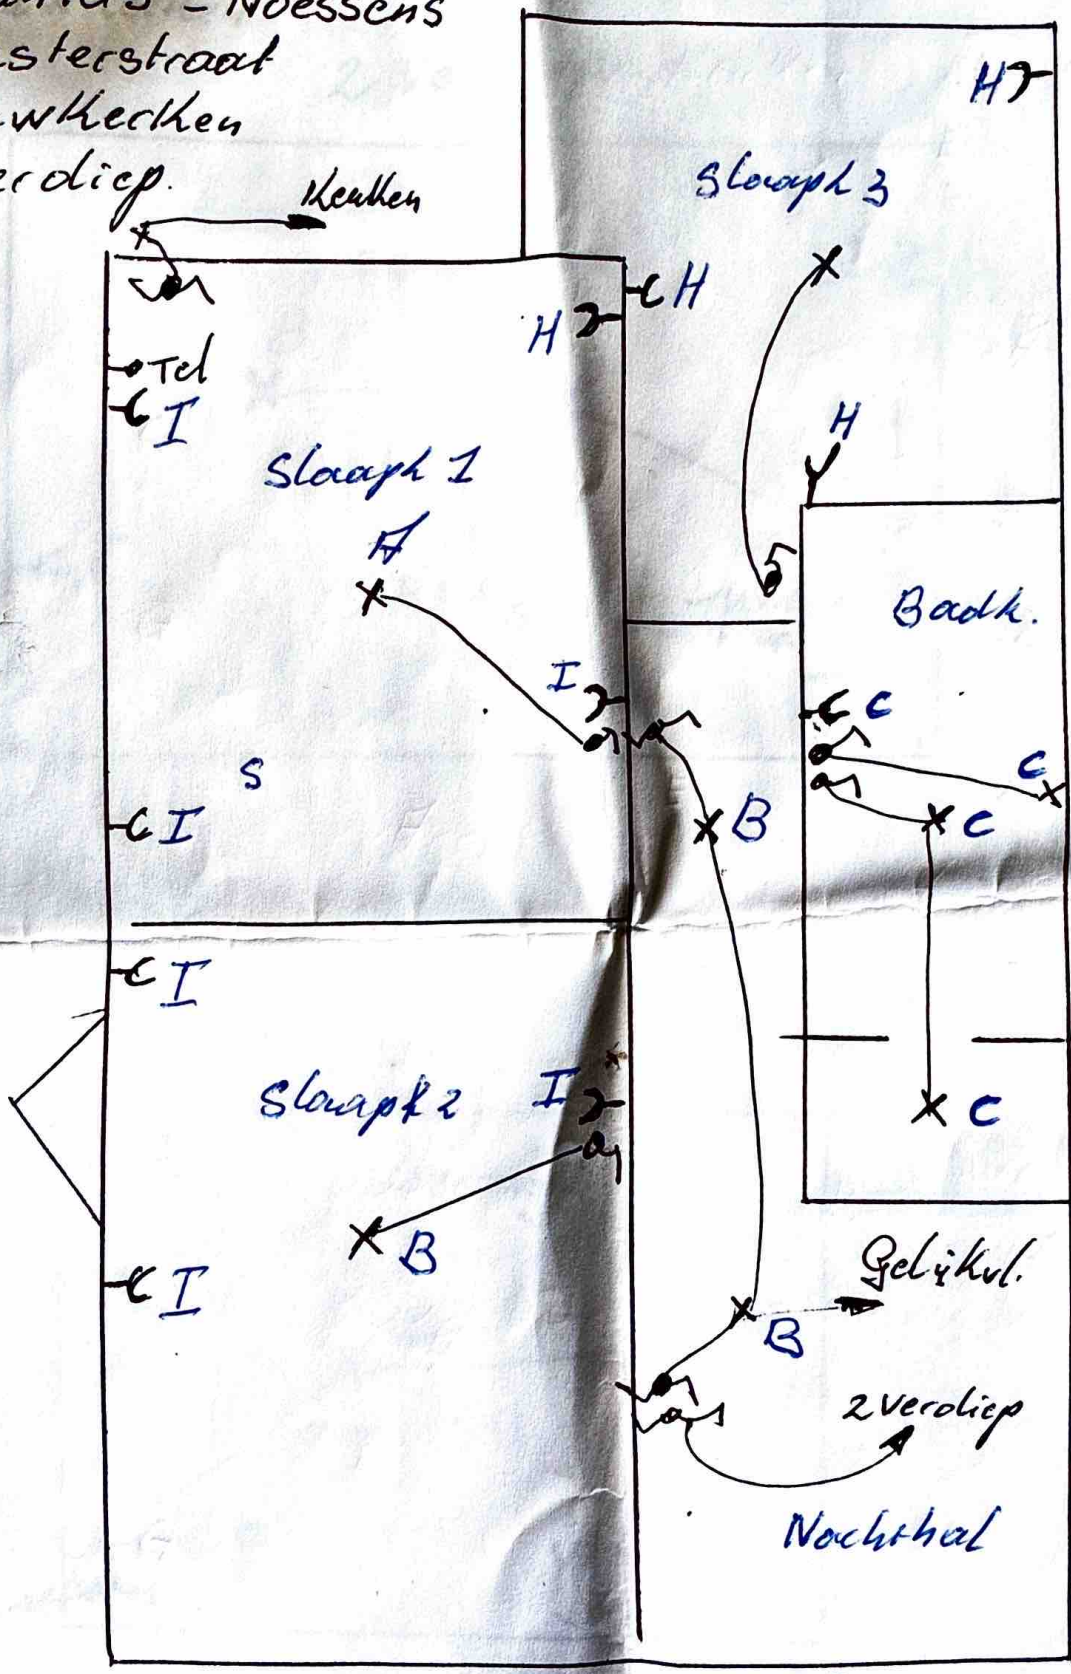 - Noessens
sterstraat
wkerken
erdiep.
Keuken
H
Slaapk 3
H
H
Tel
I
Slaapk 1
H
A
Badk.
I
C
S
C
I
B
C
I
Slaapk 2
I
C
B
Gelijkvl.
I
B
2 verdiep
Nachthal